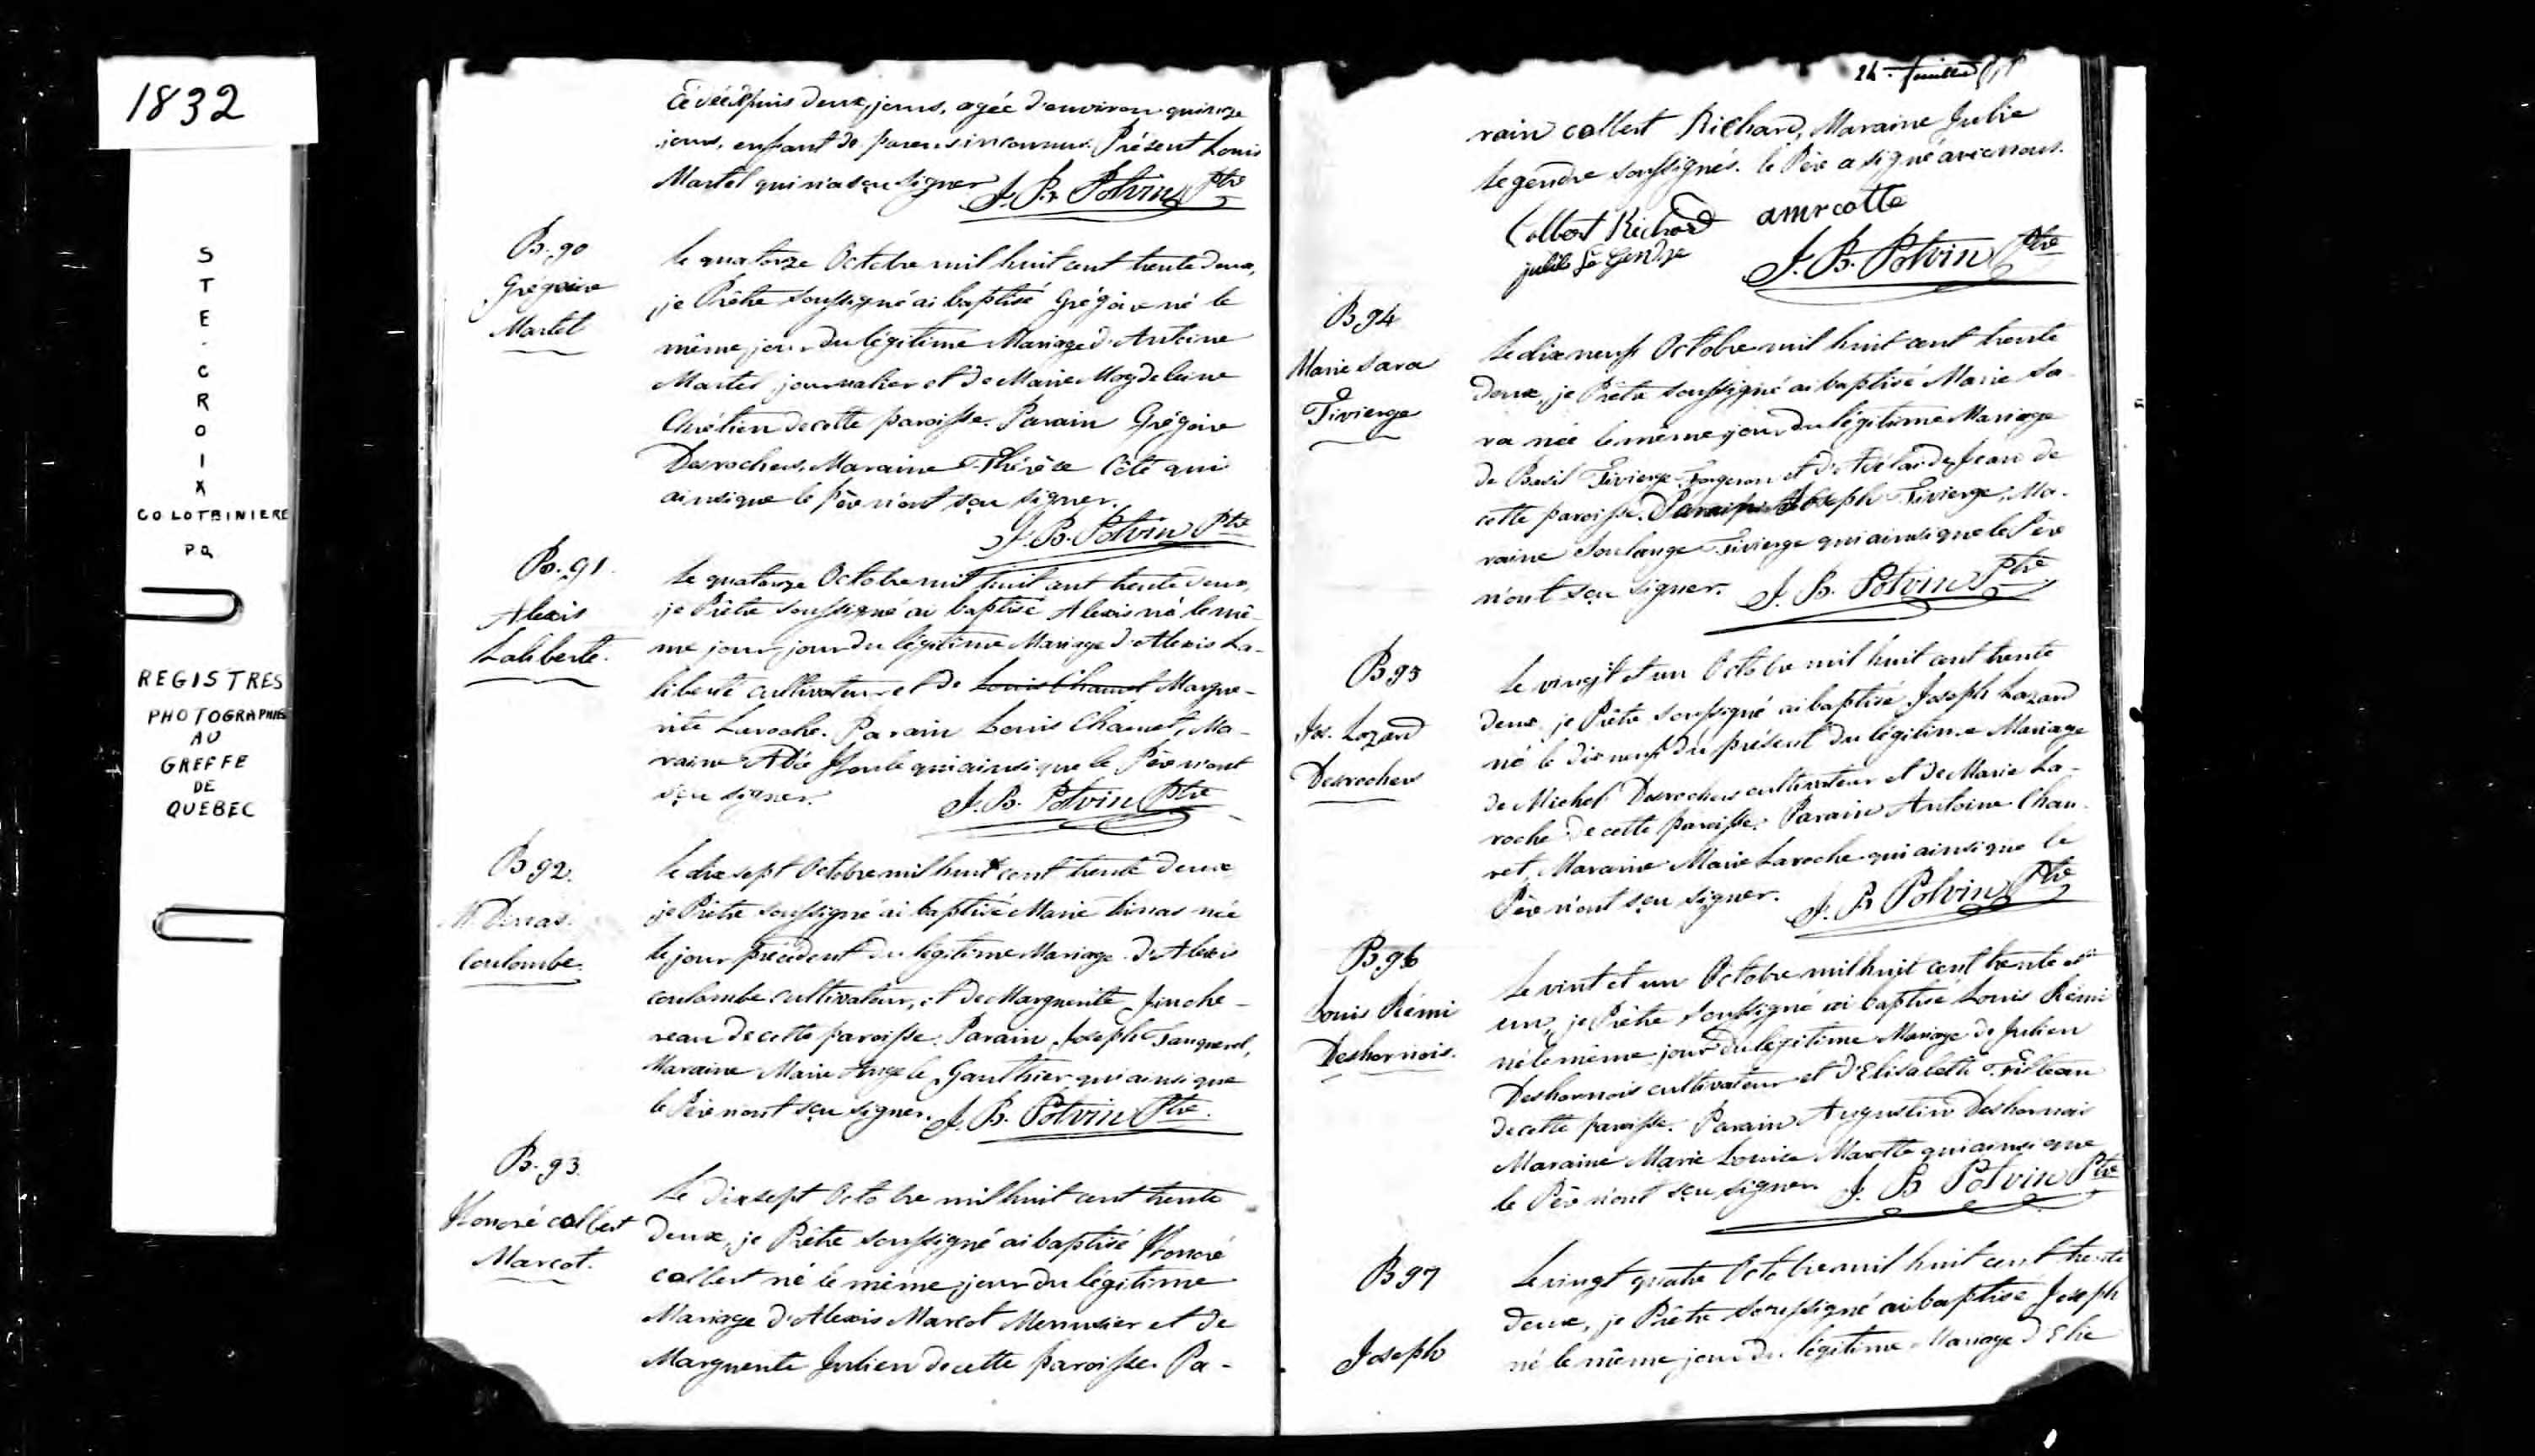 1832
STE-CROIX
CO LOTBINIERE
P.Q.
REGISTRES
PHOTOGRAPHIES
AU
GREFFE
DE
QUEBEC
jours, agée d'environ quinze
jours, enfant de parens inconnus. Présent Louis
Martel qui n'a sçu signer J. B. Potvin Ptre
B. 90
Grégoire
Martel
Le quatorze Octobre mil huit cent trente deux,
je Prêtre soussigné ai baptisé Grégoire né le
même jour du légitime Mariage d'Antoine
Martel journalier et de Marie Magdeleine
Chrétien de cette paroisse. Parain Grégoire
Desrochers, Maraine Thérèse Côté qui
ainsi que le Père n'ont sçu signer.
J. B. Potvin Ptre
B. 91.
Alexis
Laliberté.
Le quatorze Octobre mil huit cent trente deux,
je Prêtre soussigné ai baptisé Alexis né le mê-
me jour jour du légitime Mariage d'Alexis La-
liberté cultivateur et de Louis Chauret Margue-
rite Laroche. Parain Louis Chauret, Ma-
raine qui ainsi que le Père n'ont
sçu signer. J. B. Potvin Ptre
B 92.
Coulombe.
Le dix sept Octobre mil huit cent trente deux
je Prêtre soussigné ai baptisé Marie née
le jour précédent du légitime Mariage d'Alexis
coulombe cultivateur, et de Marguerite Jinche-
reau de cette paroisse. Parain Joseph
Maraine Marie Angele Gauthier qui ainsi que
le Père n'ont sçu signer. J. B. Potvin Ptre.
B. 93.
Honoré colbert
Marcot.
Le dix sept Octobre mil huit cent trente
deux, je Prêtre soussigné ai baptisé Honoré
colbert né le même jour du légitime
Mariage d'Alexis Marcot Menusier et de
Marguerite Julien de cette paroisse. Pa-
24e feuillet
rain colbert Richard, Maraine Julie
Legendre soussignés. le Père a signé avec nous.
Colbert Richard amrcotte
julie Le Gendre J. B. Potvin Ptre
B 94
Marie Sara
Tivierge
Le dix neuf Octobre mil huit cent trente
deux, je Prêtre soussigné ai baptisé Marie Sa-
ra née le même jour du légitime Mariage
de Basil Tivierge Forgeron et d'Adélaïde Jean de
cette paroisse. Parain Joseph Tivierge, Ma-
raine Soulange Tivierge qui ainsi que le Père
n'ont sçu signer. J. B. Potvin Ptre
B 95
Jos. Lazard
Desrochers
Le vingt et un Octobre mil huit cent trente
deux, je Prêtre soussigné ai baptisé Joseph Lazard
né le dix neuf du présent du légitime Mariage
de Michel Desrochers cultivateur et de Marie La-
roche de cette paroisse. Parain Antoine Chau-
ret, Maraine Marie Laroche qui ainsi que le
Père n'ont sçu signer. J. B. Potvin Ptre
B 96
Louis Rémi
Desharnois.
Le vint et un Octobre mil huit cent trente et
un, je Prêtre soussigné ai baptisé Louis Rémi
né le même jour du légitime Mariage de Julien
Desharnois cultivateur et d'Elisabeth Filteau
de cette paroisse. Parain Augustin Desharnois
Maraine Marie Louise qui ainsi que
le Père n'ont sçu signer. J. B Potvin Ptre
B 97
Joseph
Le vingt quatre Octobre mil huit cent trente
deux, je Prêtre soussigné ai baptisé Joseph
né le même jour du légitime Mariage d'Elie